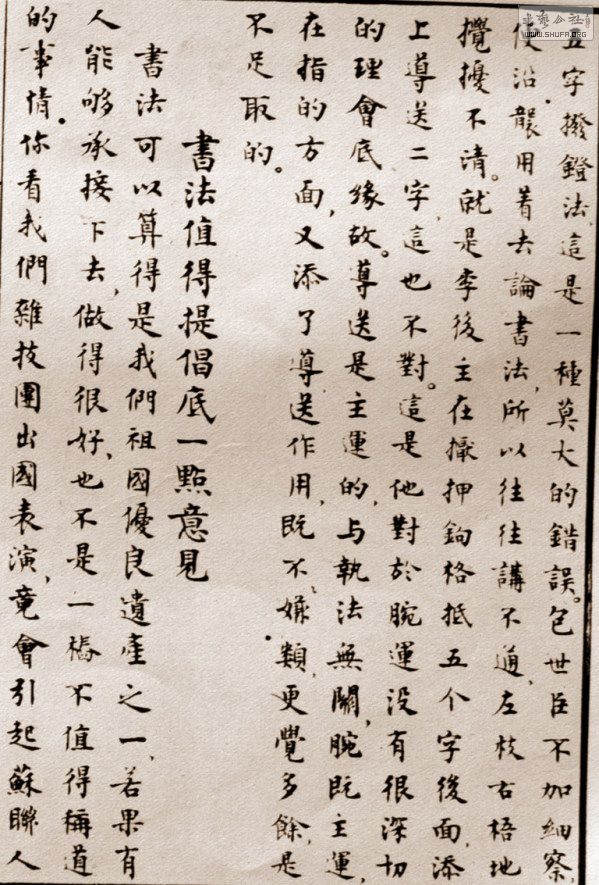 五字撥鐙法,這是一種莫大的錯誤。包世臣不加細察,
便沿襲用着去論書法,所以往往講不通,左枝右梧地
攪擾不清。就是李後主在擫押鉤格抵五个字後面,添
上導送二字,這也不對。這是他對於腕運没有很深切
的理會底緣故。導送是主運的,与執法無關,腕既主運,
在指的方面,又添了導送作用,既不類,更覺多餘,是
不足取的。
書法值得提倡底一點意見
書法可以算得是我們祖國優良遺產之一,若果有
人能够承接下去,做得很好,也不是一樁不值得稱道
的事情。你看我們雜技團出國表演,竟會引起蘇聯人
書藝公社
WWW.SHUFA.ORG